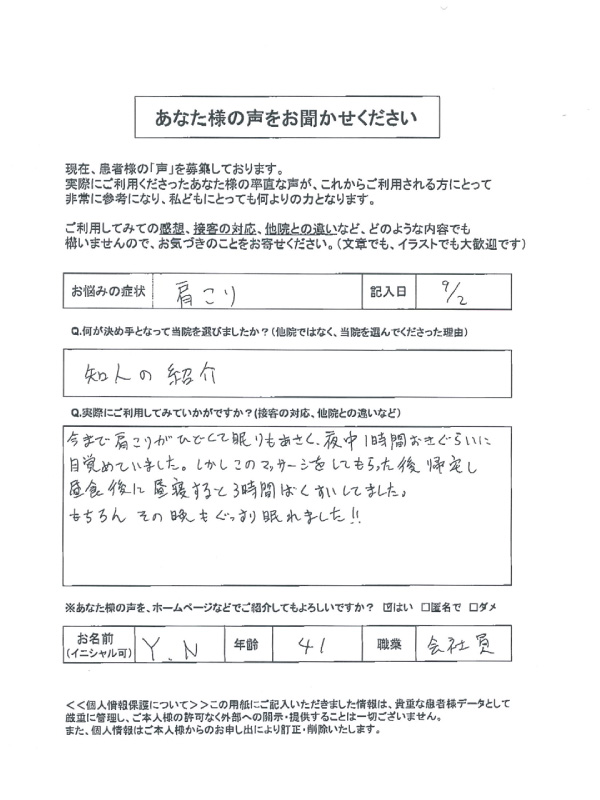 あなた様の声をお聞かせください
現在、患者様の「声」を募集しております。
実際にご利用くださったあなた様の率直な声が、これからご利用される方にとって
非常に参考になり、私どもにとっても何よりの力となります。
ご利用してみての感想、接客の対応、他院との違いなど、どのような内容でも
構いませんので、お気づきのことをお寄せください。（文章でも、イラストでも大歓迎です）
お悩みの症状 肩こり 記入日 9/2
Q.何が決め手となって当院を選びましたか？（他院ではなく、当院を選んでくださった理由）
知人の紹介
Q.実際にご利用してみていかがですか？（接客の対応、他院との違いなど）
今まで肩こりがひどくて眠りもあさく、夜中1時間おきぐらいに
目覚めていました。しかしこのマッサージをしてもらった後 帰宅し
昼食後に昼寝すると3時間ばくすいしてました。
もちろん その晩もぐっすり眠れました!!
※あなた様の声を、ホームページなどでご紹介してもよろしいですか？ ☑はい □匿名で □ダメ
お名前 Y.N 年齢 41 職業 会社員
（イニシャル可）
＜＜個人情報保護について＞＞この用紙にご記入いただきました情報は、貴重な患者様データとして
厳重に管理し、ご本人様の許可なく外部への開示・提供することは一切ございません。
また、個人情報はご本人様からのお申し出により訂正・削除いたします。